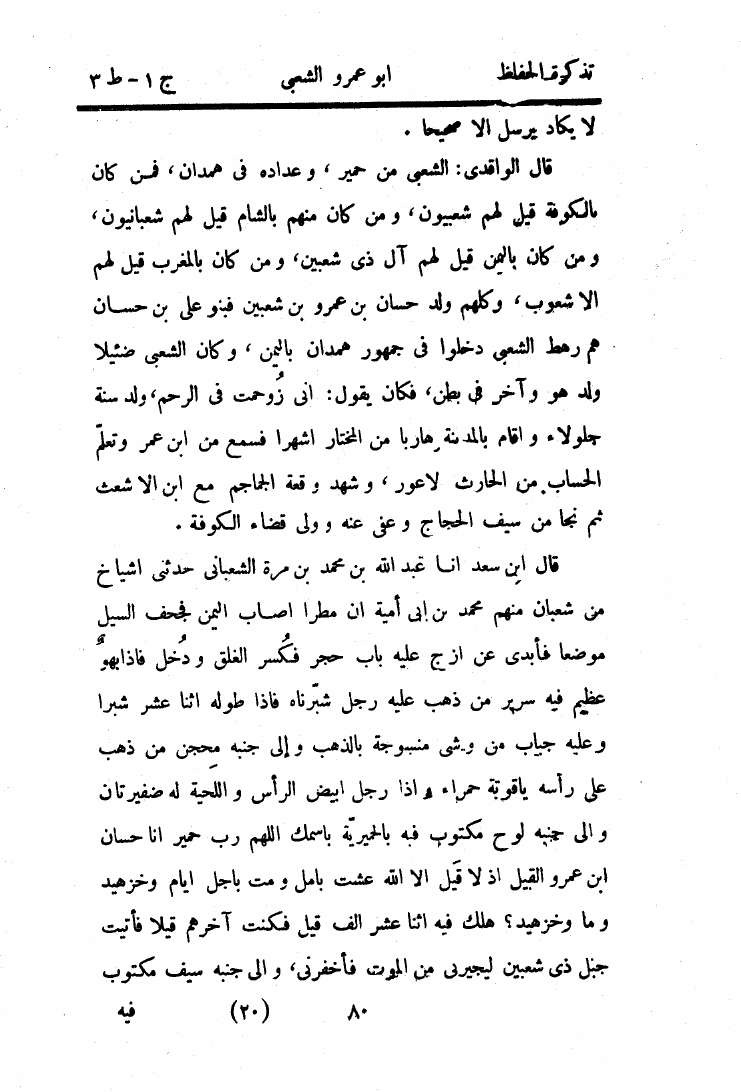 تذكرة الحفاظ ابو عمرو الشعبي ج ١ - ط ٣
لا يكاد يرسل الا صحيحا .
قال الواقدى : الشعبي من حمير ، و عداده فى همدان ، فمن كان
بالكوفة قيل لهم شعبيون ، و من كان منهم بالشام قيل لهم شعبانيون ،
و من كان باليمن قيل لهم آل ذى شعبين ، و من كان بالمغرب قيل لهم
الاشعوب ، وكلهم ولد حسان بن عمرو بن شعبين فبنو على بن حسان
هم رهط الشعبى دخلوا فى جمهور همدان باليمن ، وكان الشعبى ضئيلا
ولد هو وآخر فى بطن ، فكان يقول : انى زُوحمت فى الرحم ، ولد سنة
جلولاء و اقام بالمدينة هاربا من المختار اشهرا فسمع من ابن عمر وتعلّم
الحساب من الحارث لاعور ، و شهد وقعة الجماجم مع ابن الاشعث
ثم نجا من سيف الحجاج و عفى عنه و ولى قضاء الكوفة .
قال ابن سعد انا عبد الله بن محمد بن مرة الشعبانى حدثنى اشياخ
من شعبان منهم محمد بن ابى أمية ان مطرا اصاب اليمن فجحف السيل
موضعا فأبدى عن ازج عليه باب حجر فكُسر الغلق و دُخل فاذا بهوٌ
عظيم فيه سرير من ذهب عليه رجل شبّرناه فاذا طوله اثنا عشر شبرا
و عليه جباب من وشى منسوجة بالذهب و إلى جنبه محجن من ذهب
على رأسه ياقوتة حمراء و اذا رجل ابيض الرأس و اللحية له ضفيرتان
و الى جنبه لوح مكتوب فيه بالحميريّة باسمك اللهم رب حمير انا حسان
ابن عمرو القيل اذ لا قَيل الا الله عشت بامل و مت باجل ايام وخزهيد
و ما وخزهيد ؟ هلك فيه اثنا عشر الف قيل فكنت آخرهم قيلا فأتيت
جبل ذى شعبين ليجيرنى من الموت فأخفرنى ، و الى جنبه سيف مكتوب
٨٠ (٢٠) فيه